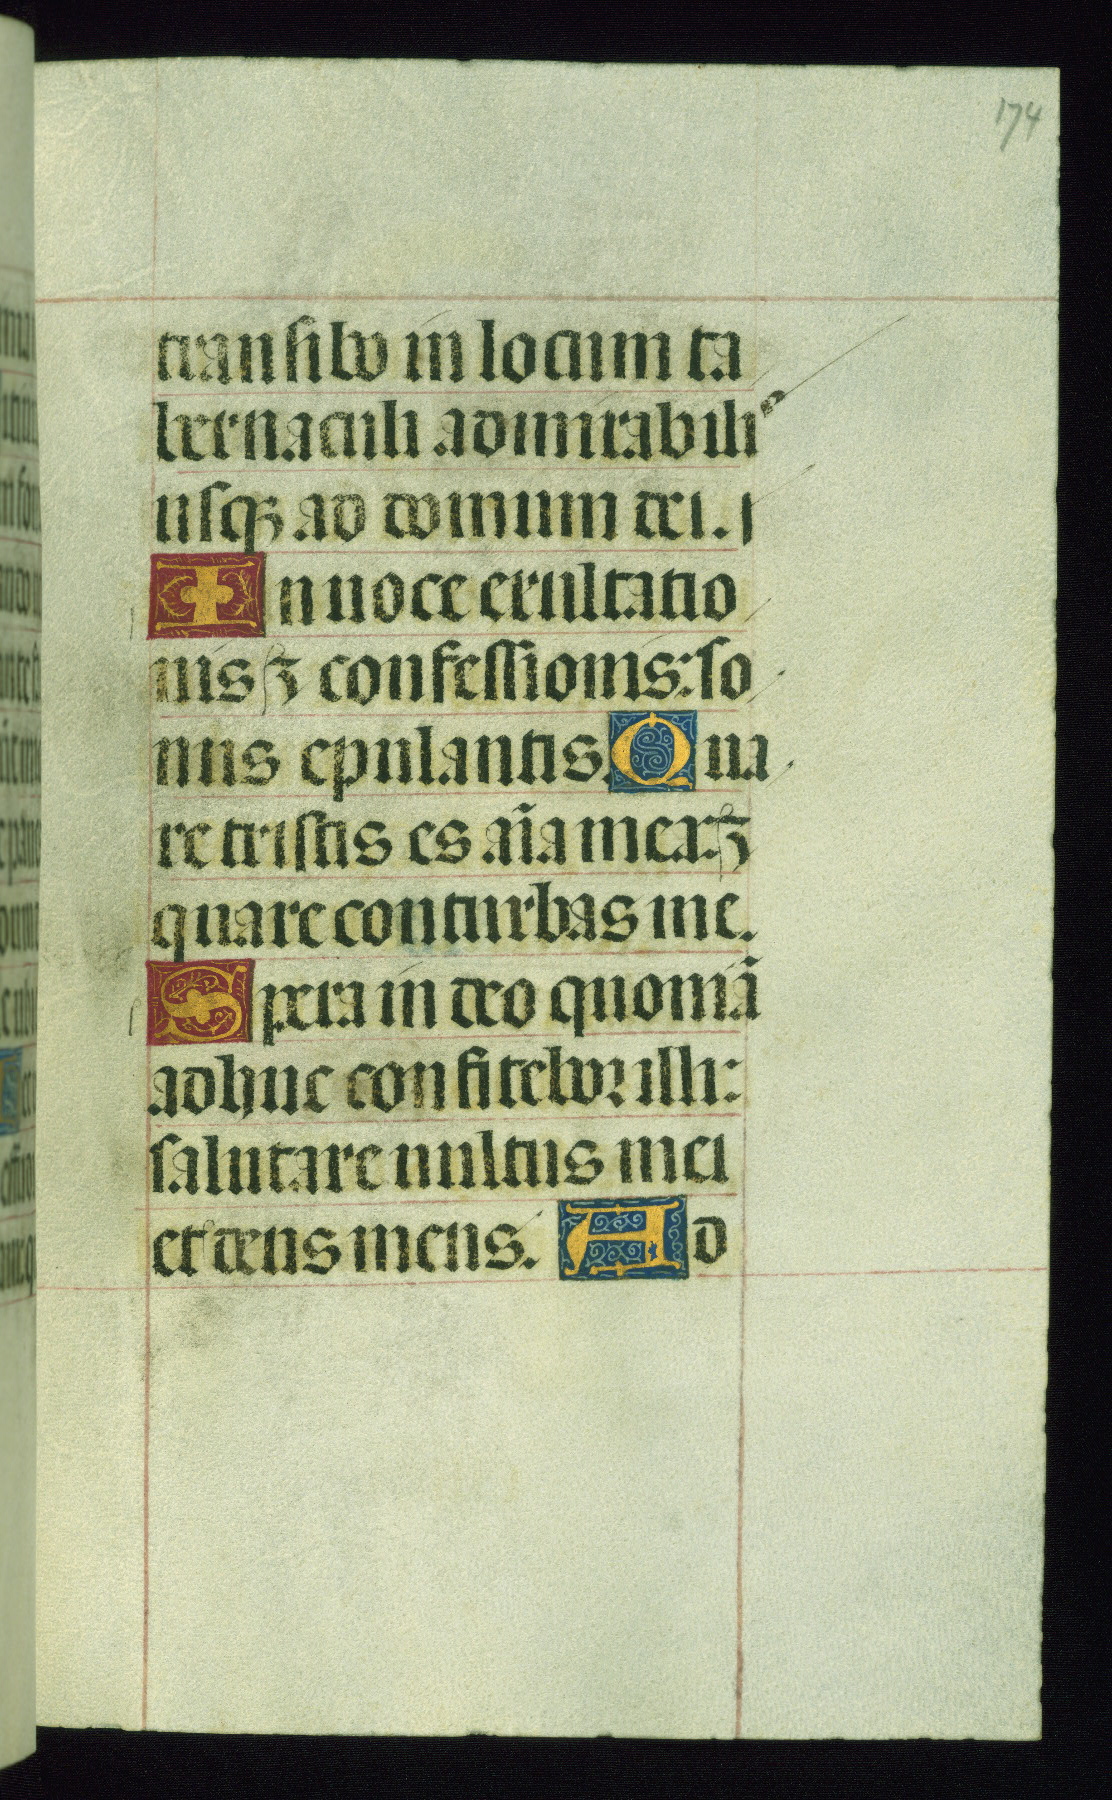 174
transibo in locum ta
bernaculi admirabilis
usqꝫ ad domum dei.
In uoce exultatio
nis ⁊ confessionis: so
nus epulantis. Qua
re tristis es aīa mea: ⁊
quare conturbas me.
Spera in deo quoniā
adhuc confitebor illi:
salutare uultus mei
et deus meus. Ad